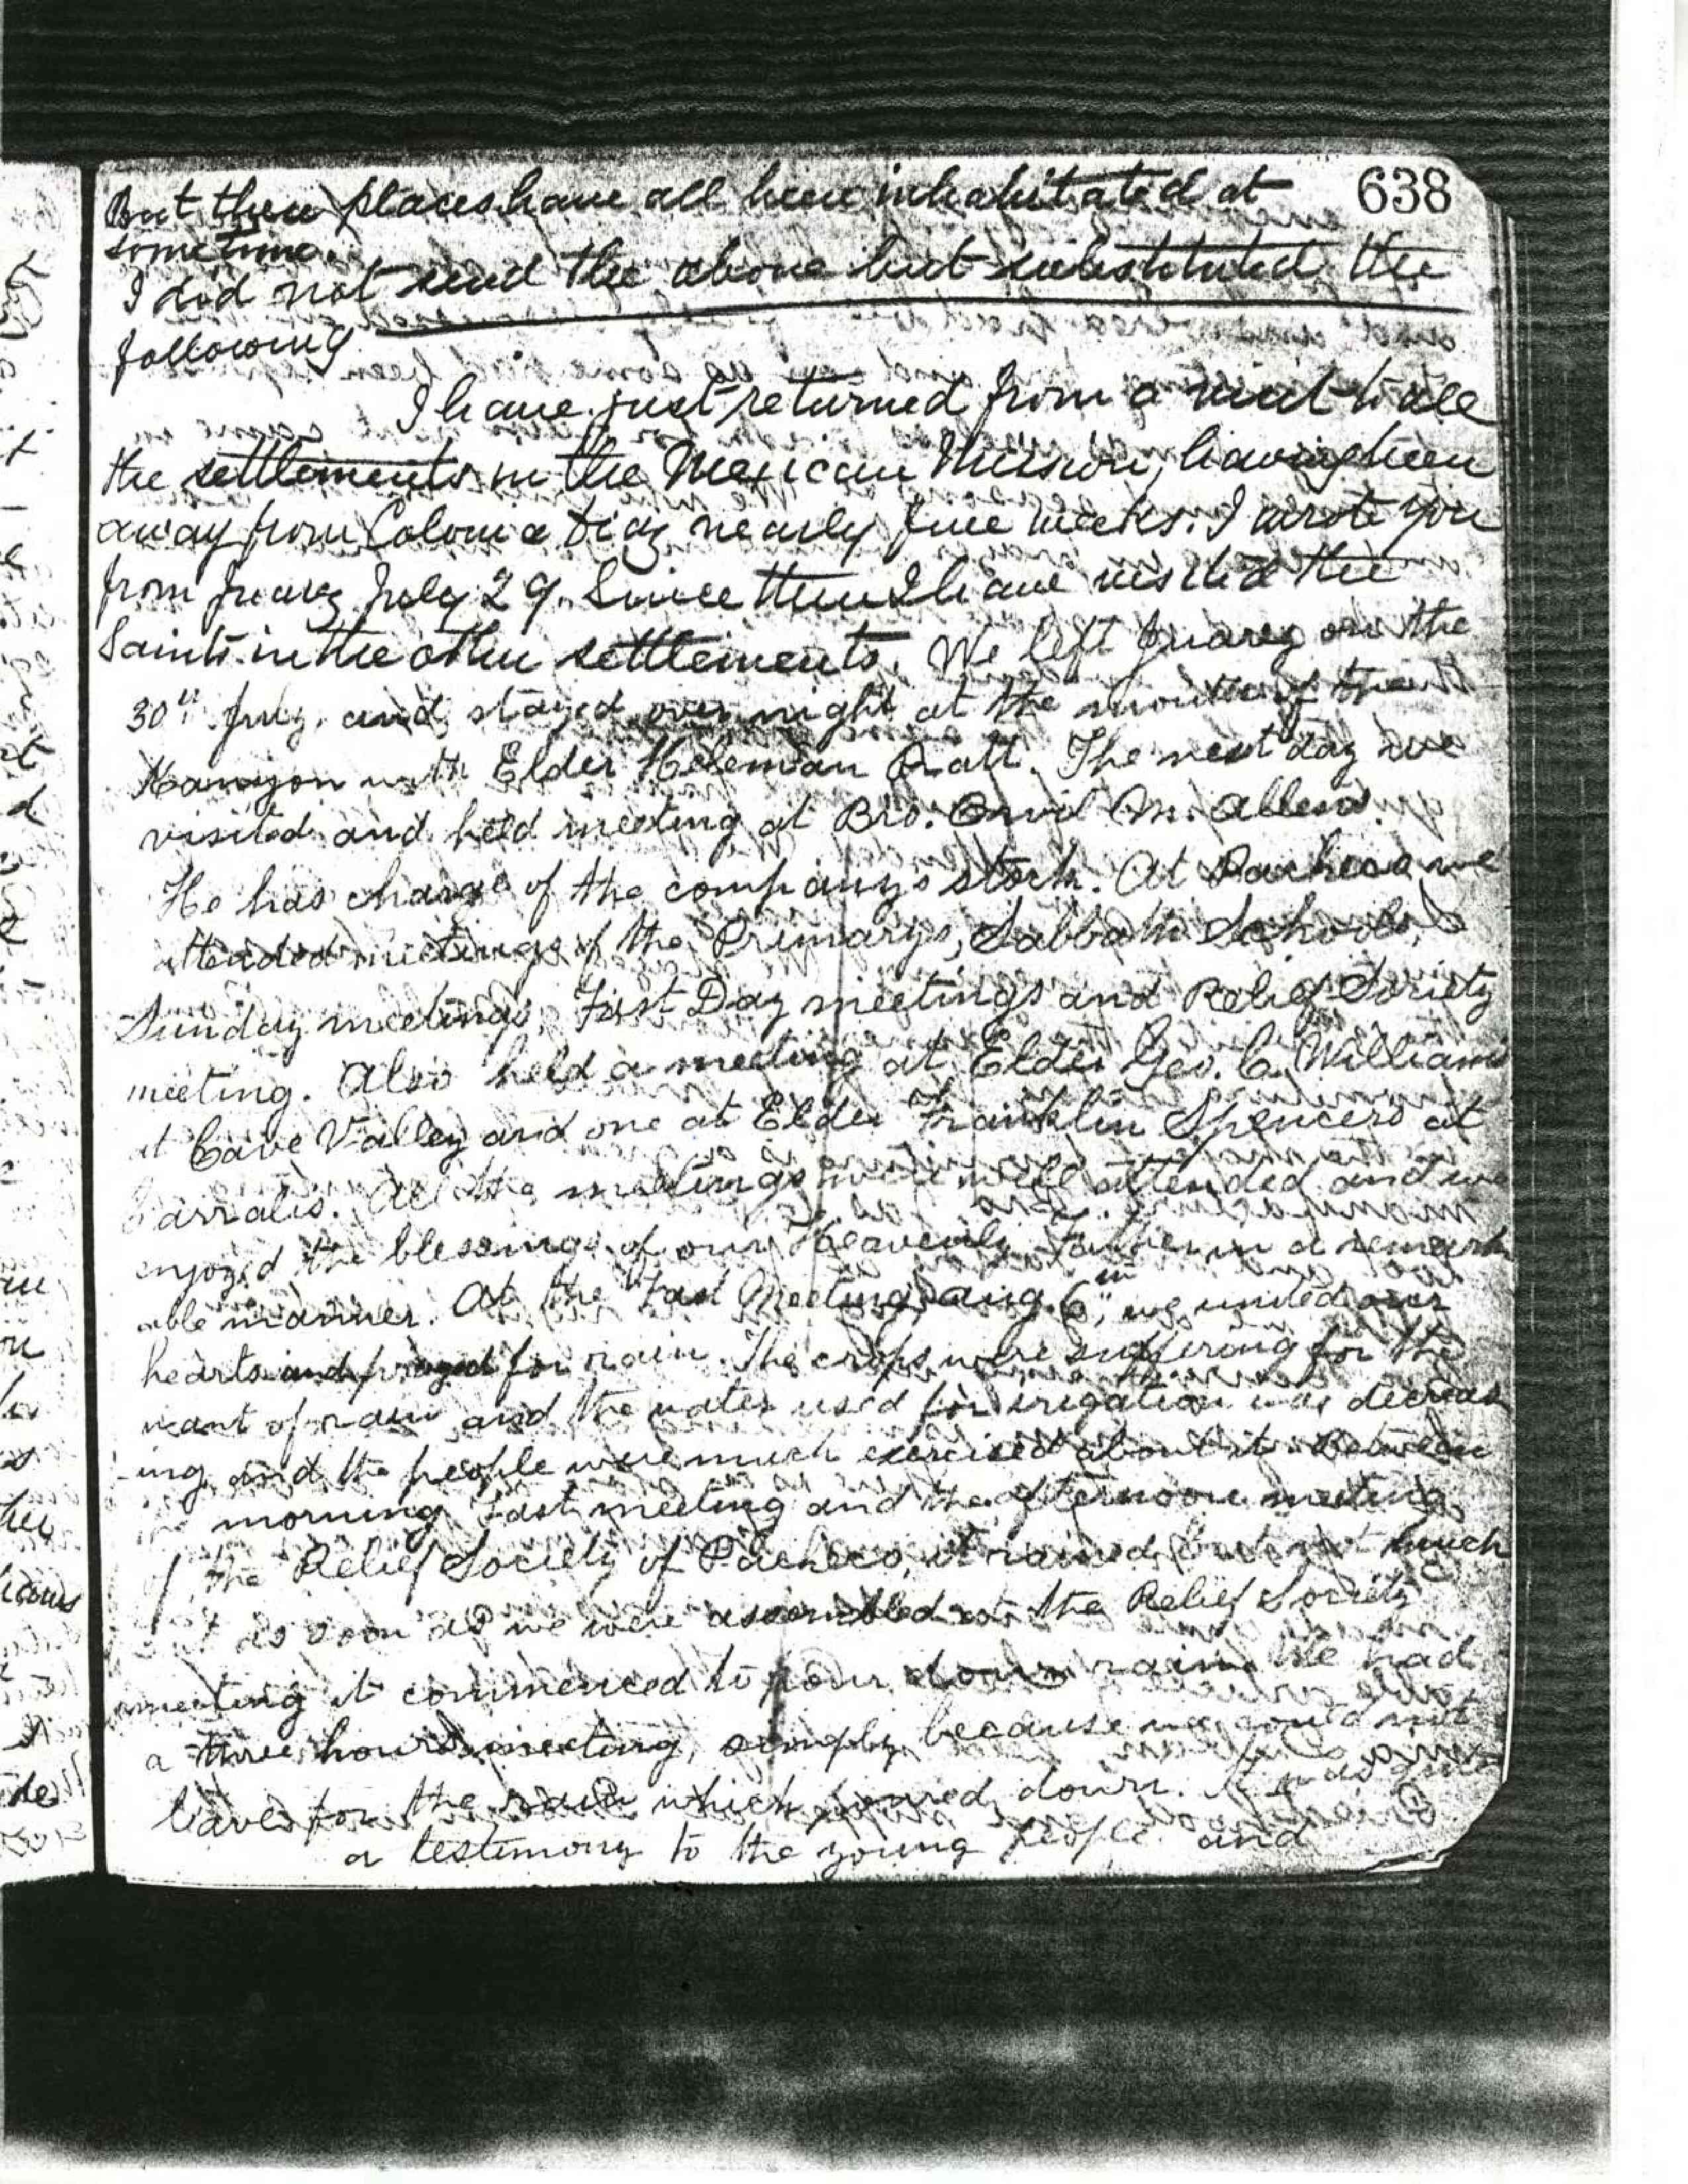 638
But these places have all been inhabitated at
sometime.
I did not send the above but substituted the
following
I have just returned from a visit to all
the settlements in the Mexican Mission, having been
away from Colonia Diaz nearly five weeks. I wrote you
from Juarez July 29. Since then I have visited the
Saints in the other settlements. We left Juarez on the
30th July, and stayed over night at the mouth of the
Kanyon with Elder Heleman Pratt. The next day we
visited and held meeting at Bro. Orvil M. Allens.
He has charge of the company's stock. At Pacheco we
attended meetings of the Primarys, Sabbath Schools,
Sunday meetings, Fast Day meetings and Relief Society
meeting. Also held a meeting at Elder Geo. C. Williams
at Cave Valley and one at Elder Franklin Spencers at
Carralis. All the meetings were well attended and we
enjoyed the blessings of our Heavenly Father in a remark
able manner. At the Fast Meeting Aug. 6th, we united our
hearts and prayed for rain. The crops were suffering for the
want of rain and the water used for irigation was decreas
ing and the people were much exercised about it. Between
morning Fast meeting and the afternoon meeting
of the Relief Society of Pacheco, it rained, but not much
but as soon as we were assembled at the Relief Society
meeting it commenced to pour down rain. We had
a three hours meeting, simply because we could not
leave for the rain which poured down. It was quite
a testimony to the young people and